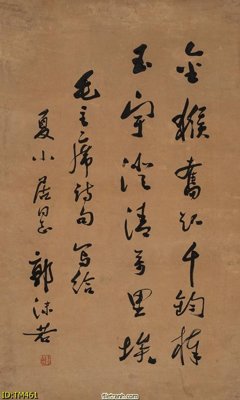 金猴奋起千钧棒
玉宇澄清万里埃
毛主席诗句写给
夏小居同志
郭沫若
ID:TM461